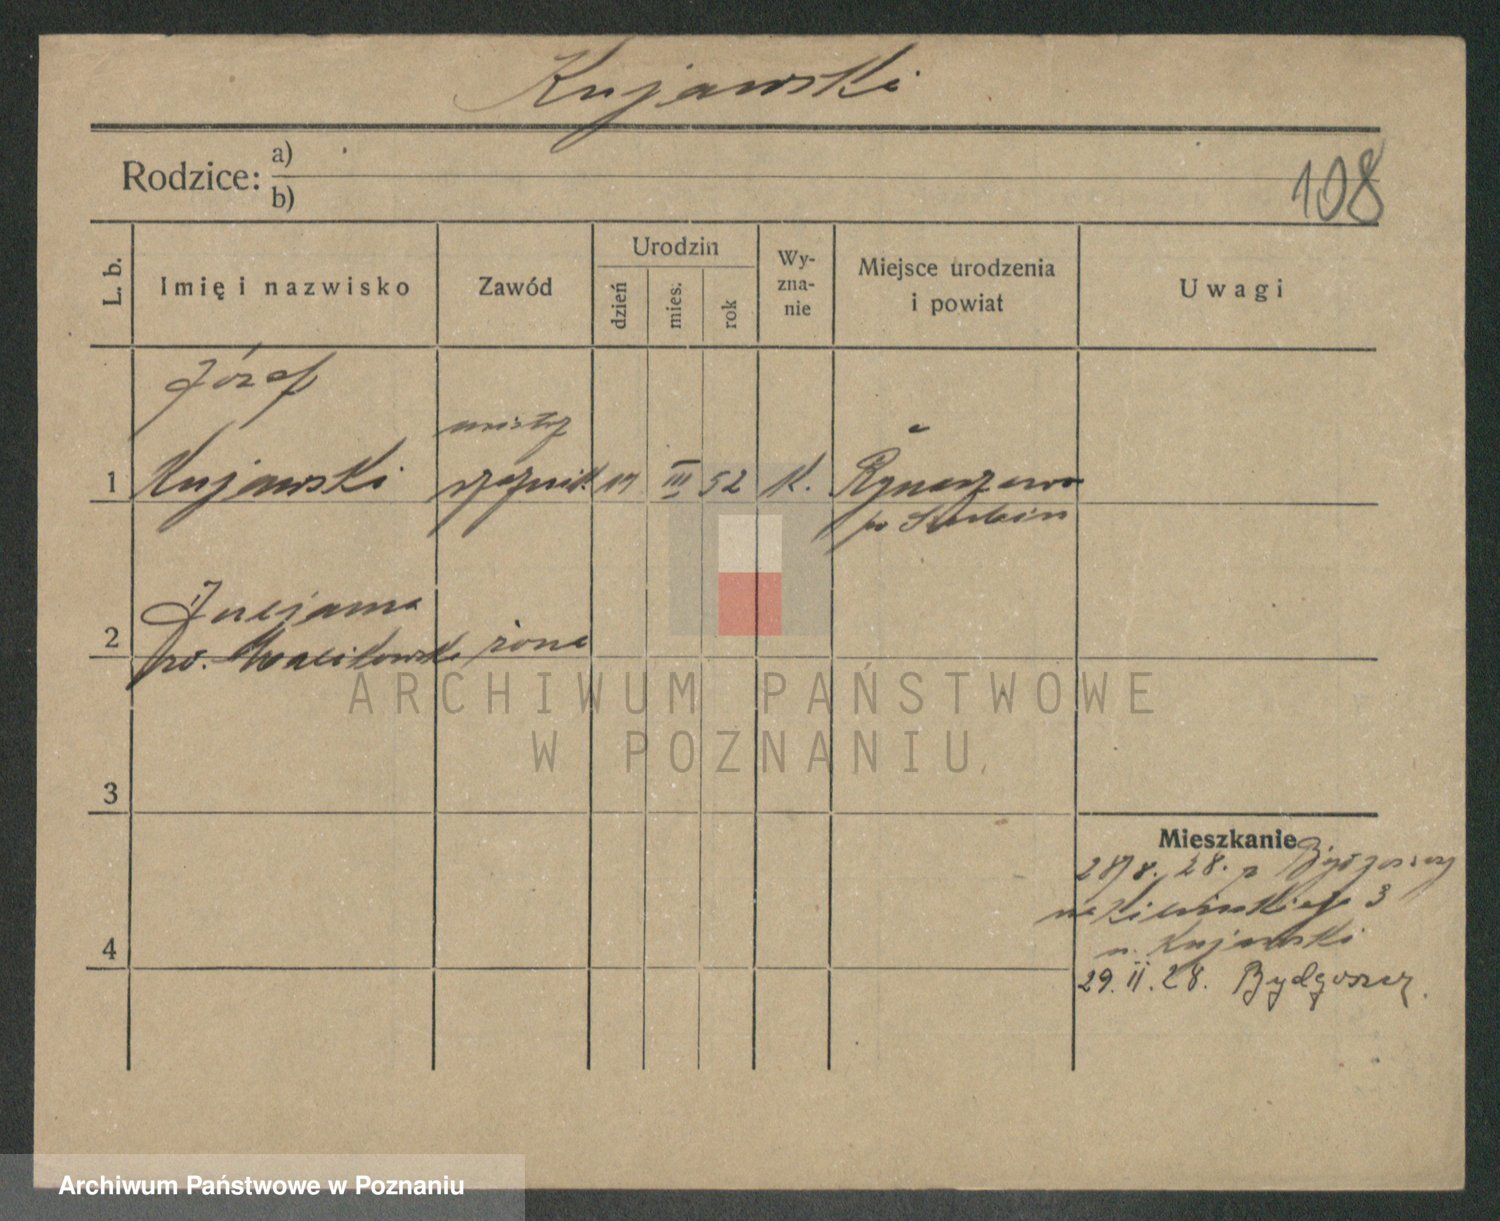 Kujawski
Rodzice: a)
b)
108
L. b.
Imię i nazwisko
Zawód
Urodzin
dzień
mies.
rok
Wy-
zna-
nie
Miejsce urodzenia
i powiat
Uwagi
Józef
mistrz
1 Kujawski rzeźnik 17 III 52 K. Rynarzewo
po Szubin
Julianna
2 żona
3
4
Mieszkanie
28. z Bydgoszczy
3
u. Kujawski
29. II. 28. Bydgoszcz.
ARCHIWUM PAŃSTWOWE
W POZNANIU
Archiwum Państwowe w Poznaniu